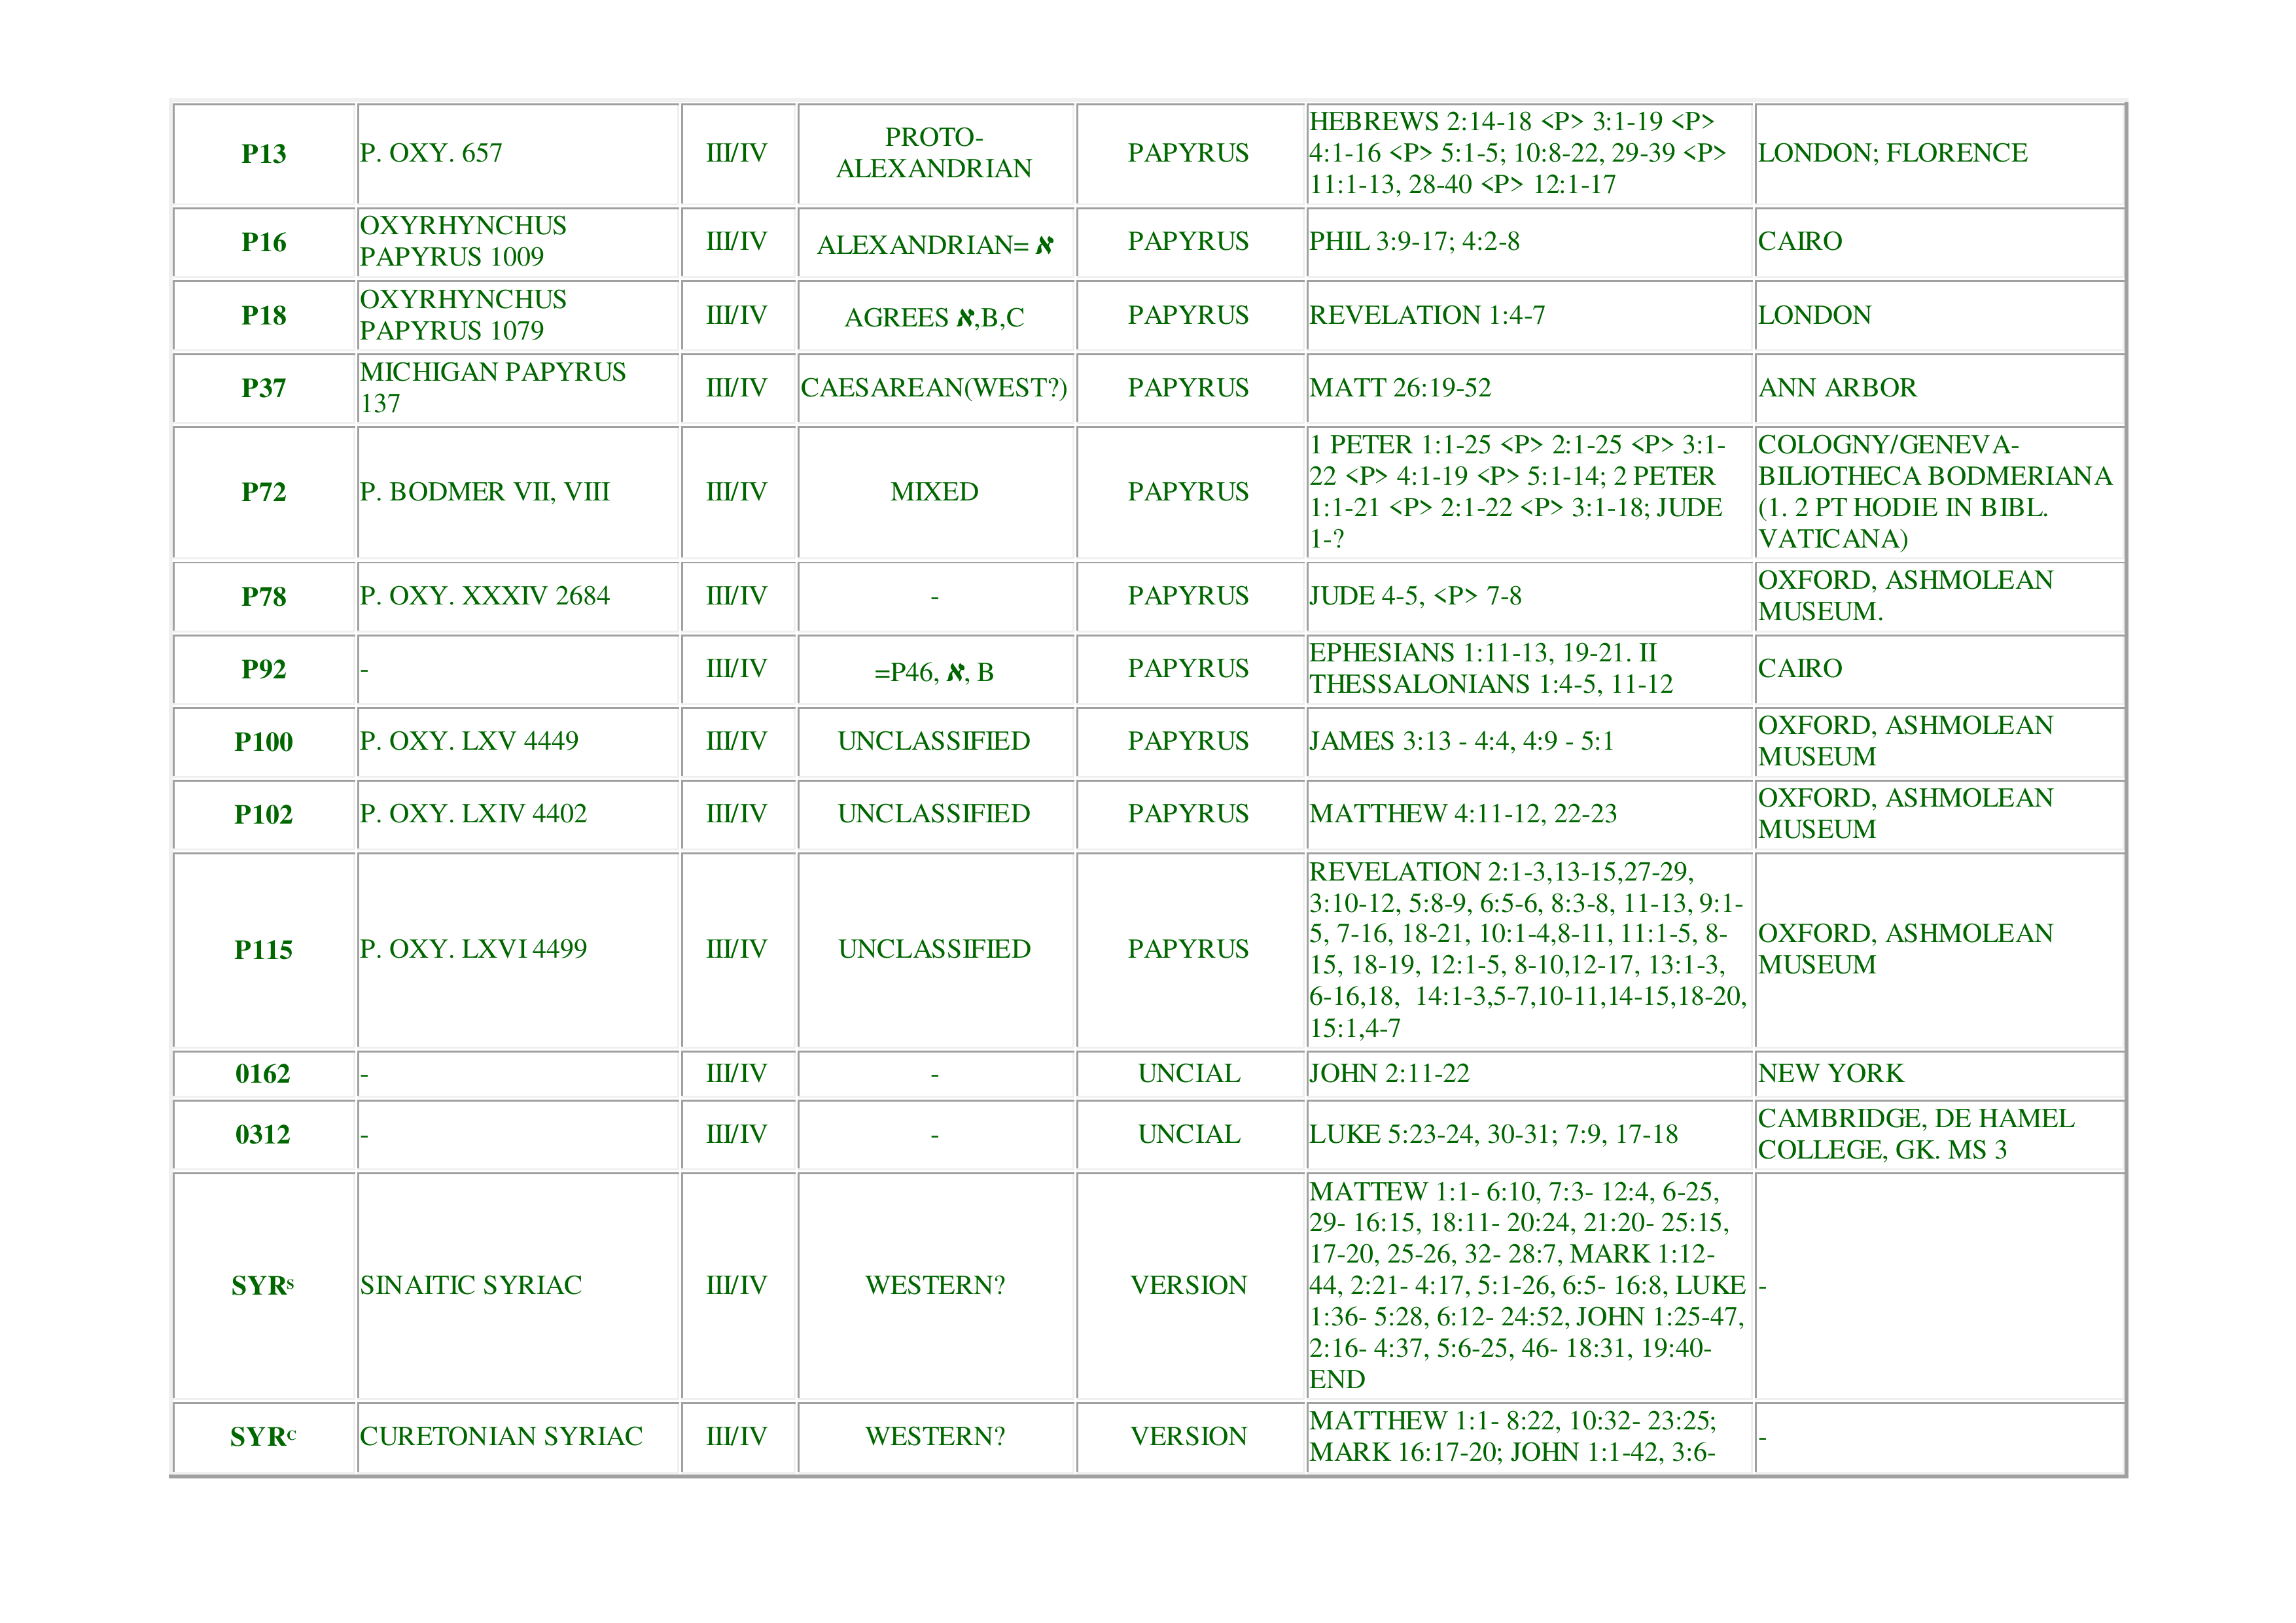 P13
P. OXY. 657
III/IV
PROTO-
ALEXANDRIAN
PAPYRUS
HEBREWS 2:14-18 <P> 3:1-19 <P>
4:1-16 <P> 5:1-5; 10:8-22, 29-39 <P>
11:1-13, 28-40 <P> 12:1-17
LONDON; FLORENCE
P16
OXYRHYNCHUS
PAPYRUS 1009
III/IV
ALEXANDRIAN= א
PAPYRUS
PHIL 3:9-17; 4:2-8
CAIRO
P18
OXYRHYNCHUS
PAPYRUS 1079
III/IV
AGREES א,B,C
PAPYRUS
REVELATION 1:4-7
LONDON
P37
MICHIGAN PAPYRUS
137
III/IV
CAESAREAN(WEST?)
PAPYRUS
MATT 26:19-52
ANN ARBOR
P72
P. BODMER VII, VIII
III/IV
MIXED
PAPYRUS
1 PETER 1:1-25 <P> 2:1-25 <P> 3:1-
22 <P> 4:1-19 <P> 5:1-14; 2 PETER
1:1-21 <P> 2:1-22 <P> 3:1-18; JUDE
1-?
COLOGNY/GENEVA-
BILIOTHECA BODMERIANA
(1. 2 PT HODIE IN BIBL.
VATICANA)
P78
P. OXY. XXXIV 2684
III/IV
-
PAPYRUS
JUDE 4-5, <P> 7-8
OXFORD, ASHMOLEAN
MUSEUM.
P92
-
III/IV
=P46, א, B
PAPYRUS
EPHESIANS 1:11-13, 19-21. II
THESSALONIANS 1:4-5, 11-12
CAIRO
P100
P. OXY. LXV 4449
III/IV
UNCLASSIFIED
PAPYRUS
JAMES 3:13 - 4:4, 4:9 - 5:1
OXFORD, ASHMOLEAN
MUSEUM
P102
P. OXY. LXIV 4402
III/IV
UNCLASSIFIED
PAPYRUS
MATTHEW 4:11-12, 22-23
OXFORD, ASHMOLEAN
MUSEUM
P115
P. OXY. LXVI 4499
III/IV
UNCLASSIFIED
PAPYRUS
REVELATION 2:1-3,13-15,27-29,
3:10-12, 5:8-9, 6:5-6, 8:3-8, 11-13, 9:1-
5, 7-16, 18-21, 10:1-4,8-11, 11:1-5, 8-
15, 18-19, 12:1-5, 8-10,12-17, 13:1-3,
6-16,18, 14:1-3,5-7,10-11,14-15,18-20,
15:1,4-7
OXFORD, ASHMOLEAN
MUSEUM
0162
-
III/IV
-
UNCIAL
JOHN 2:11-22
NEW YORK
0312
-
III/IV
-
UNCIAL
LUKE 5:23-24, 30-31; 7:9, 17-18
CAMBRIDGE, DE HAMEL
COLLEGE, GK. MS 3
SYRˢ
SINAITIC SYRIAC
III/IV
WESTERN?
VERSION
MATTEW 1:1- 6:10, 7:3- 12:4, 6-25,
29- 16:15, 18:11- 20:24, 21:20- 25:15,
17-20, 25-26, 32- 28:7, MARK 1:12-
44, 2:21- 4:17, 5:1-26, 6:5- 16:8, LUKE
1:36- 5:28, 6:12- 24:52, JOHN 1:25-47,
2:16- 4:37, 5:6-25, 46- 18:31, 19:40-
END
-
SYRᶜ
CURETONIAN SYRIAC
III/IV
WESTERN?
VERSION
MATTHEW 1:1- 8:22, 10:32- 23:25;
MARK 16:17-20; JOHN 1:1-42, 3:6-
-